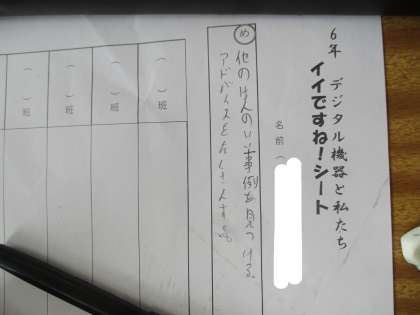 6年 デジタル機器と私たち
イイですね!シート
名前（
め
他のはんのいい事例を見つける。
アドバイスを
（　）班
（　）班
（　）班
（　）班